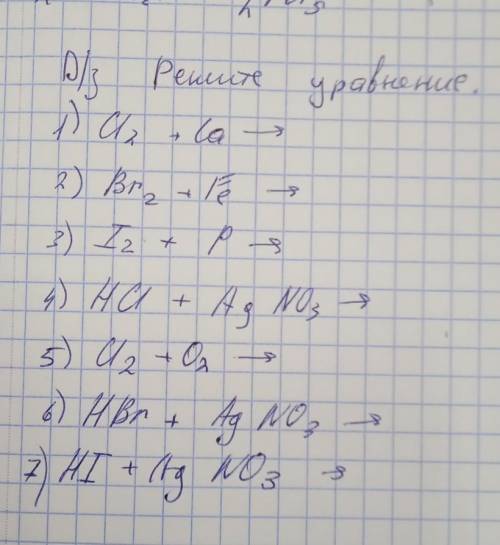 D/з Решите уравнение.
1) Cl2 + Ca →
2) Br2 + Fe →
3) I2 + P →
4) HCl + Ag NO3 →
5) Cl2 + O2 →
6) HBr + Ag NO3 →
7) HI + Ag NO3 →